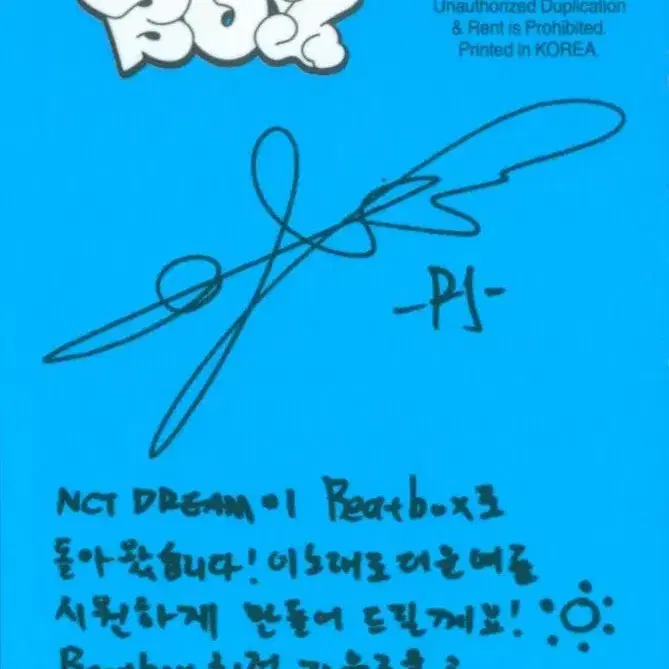 BOX
Unauthorized Duplication
& Rent is Prohibited.
Printed In KOREA.
-PJ-
NCT DREAM이 Beatbox로
돌아왔습니다! 이노래로 더운여름
시원하게 만들어 드릴께요!